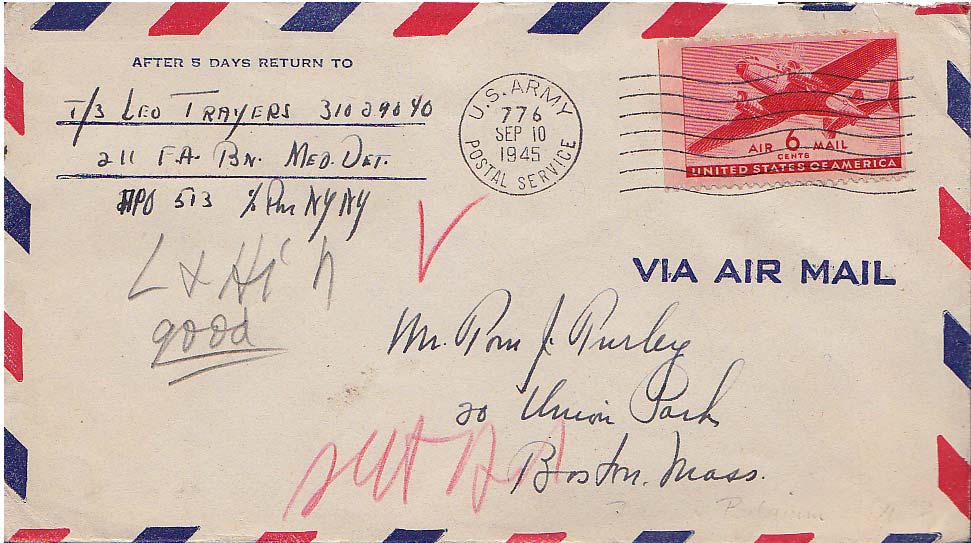 AFTER 5 DAYS RETURN TO
T/3 LEO TRAYERS 31029040
211 F.A. BN. MED. DET.
APO 513 % Pm NY NY
U.S. ARMY
776
SEP 10
1945
POSTAL SERVICE
AIR 6 MAIL
CENTS
UNITED STATES OF AMERICA
VIA AIR MAIL
good
Mr. Tom J. Purley
20 Union Park
Boston. Mass.